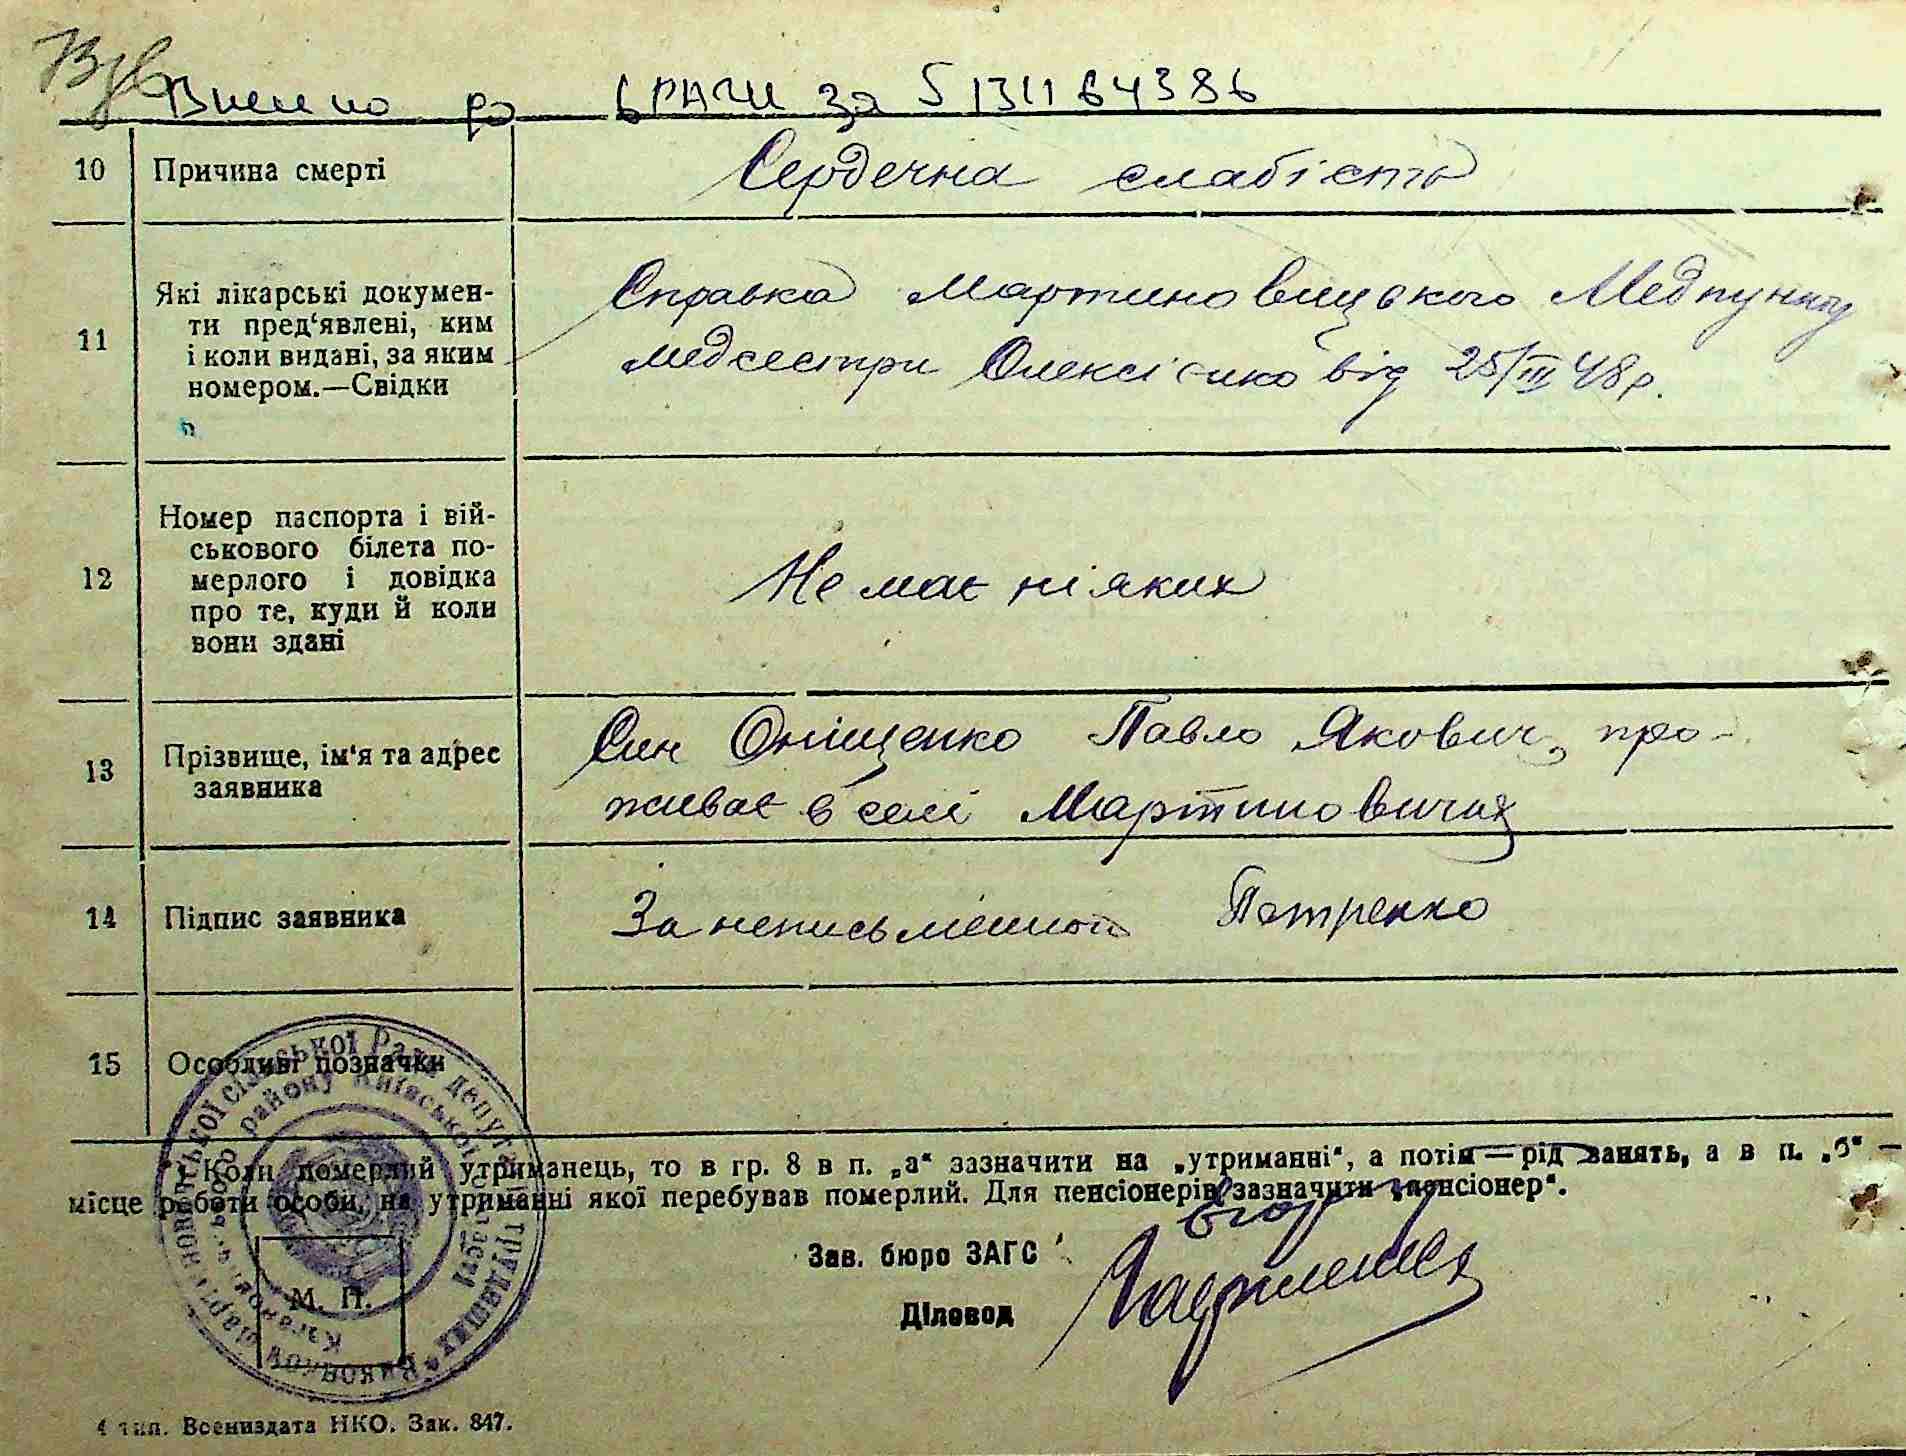 Внесено до ДРАЦС за § 1311 64386
10 Причина смерті Сердечна слабість
11 Які лікарські докумен-
ти пред'явлені, ким
і коли видані, за яким
номером.—Свідки
Справка Мартиновицького Медпункту
медсестри Олексієнко від 25/III 48р.
12 Номер паспорта і вій-
ськового білета по-
мерлого і довідка
про те, куди й коли
вони здані
Не має ні яких
13 Прізвище, ім'я та адрес
заявника
Син Оніщенко Павло Якович, про-
живає в селі Мартиновичах
14 Підпис заявника За неписьменного Петренко
15 Особливі позначки
*) Коли померлий утриманець, то в гр. 8 в п. „а" зазначити на „утриманні", а потім — рід занять, а в п. „б" —
місце роботи особи, на утриманні якої перебував померлий. Для пенсіонерів зазначити „пенсіонер".
Зав. бюро ЗАГС
Діловод
Виконком Мартиновицької сільської Ради депутатів трудящих
Кагановицького району Київської області
М. П.
4 тип. Воениздата НКО. Зак. 847.